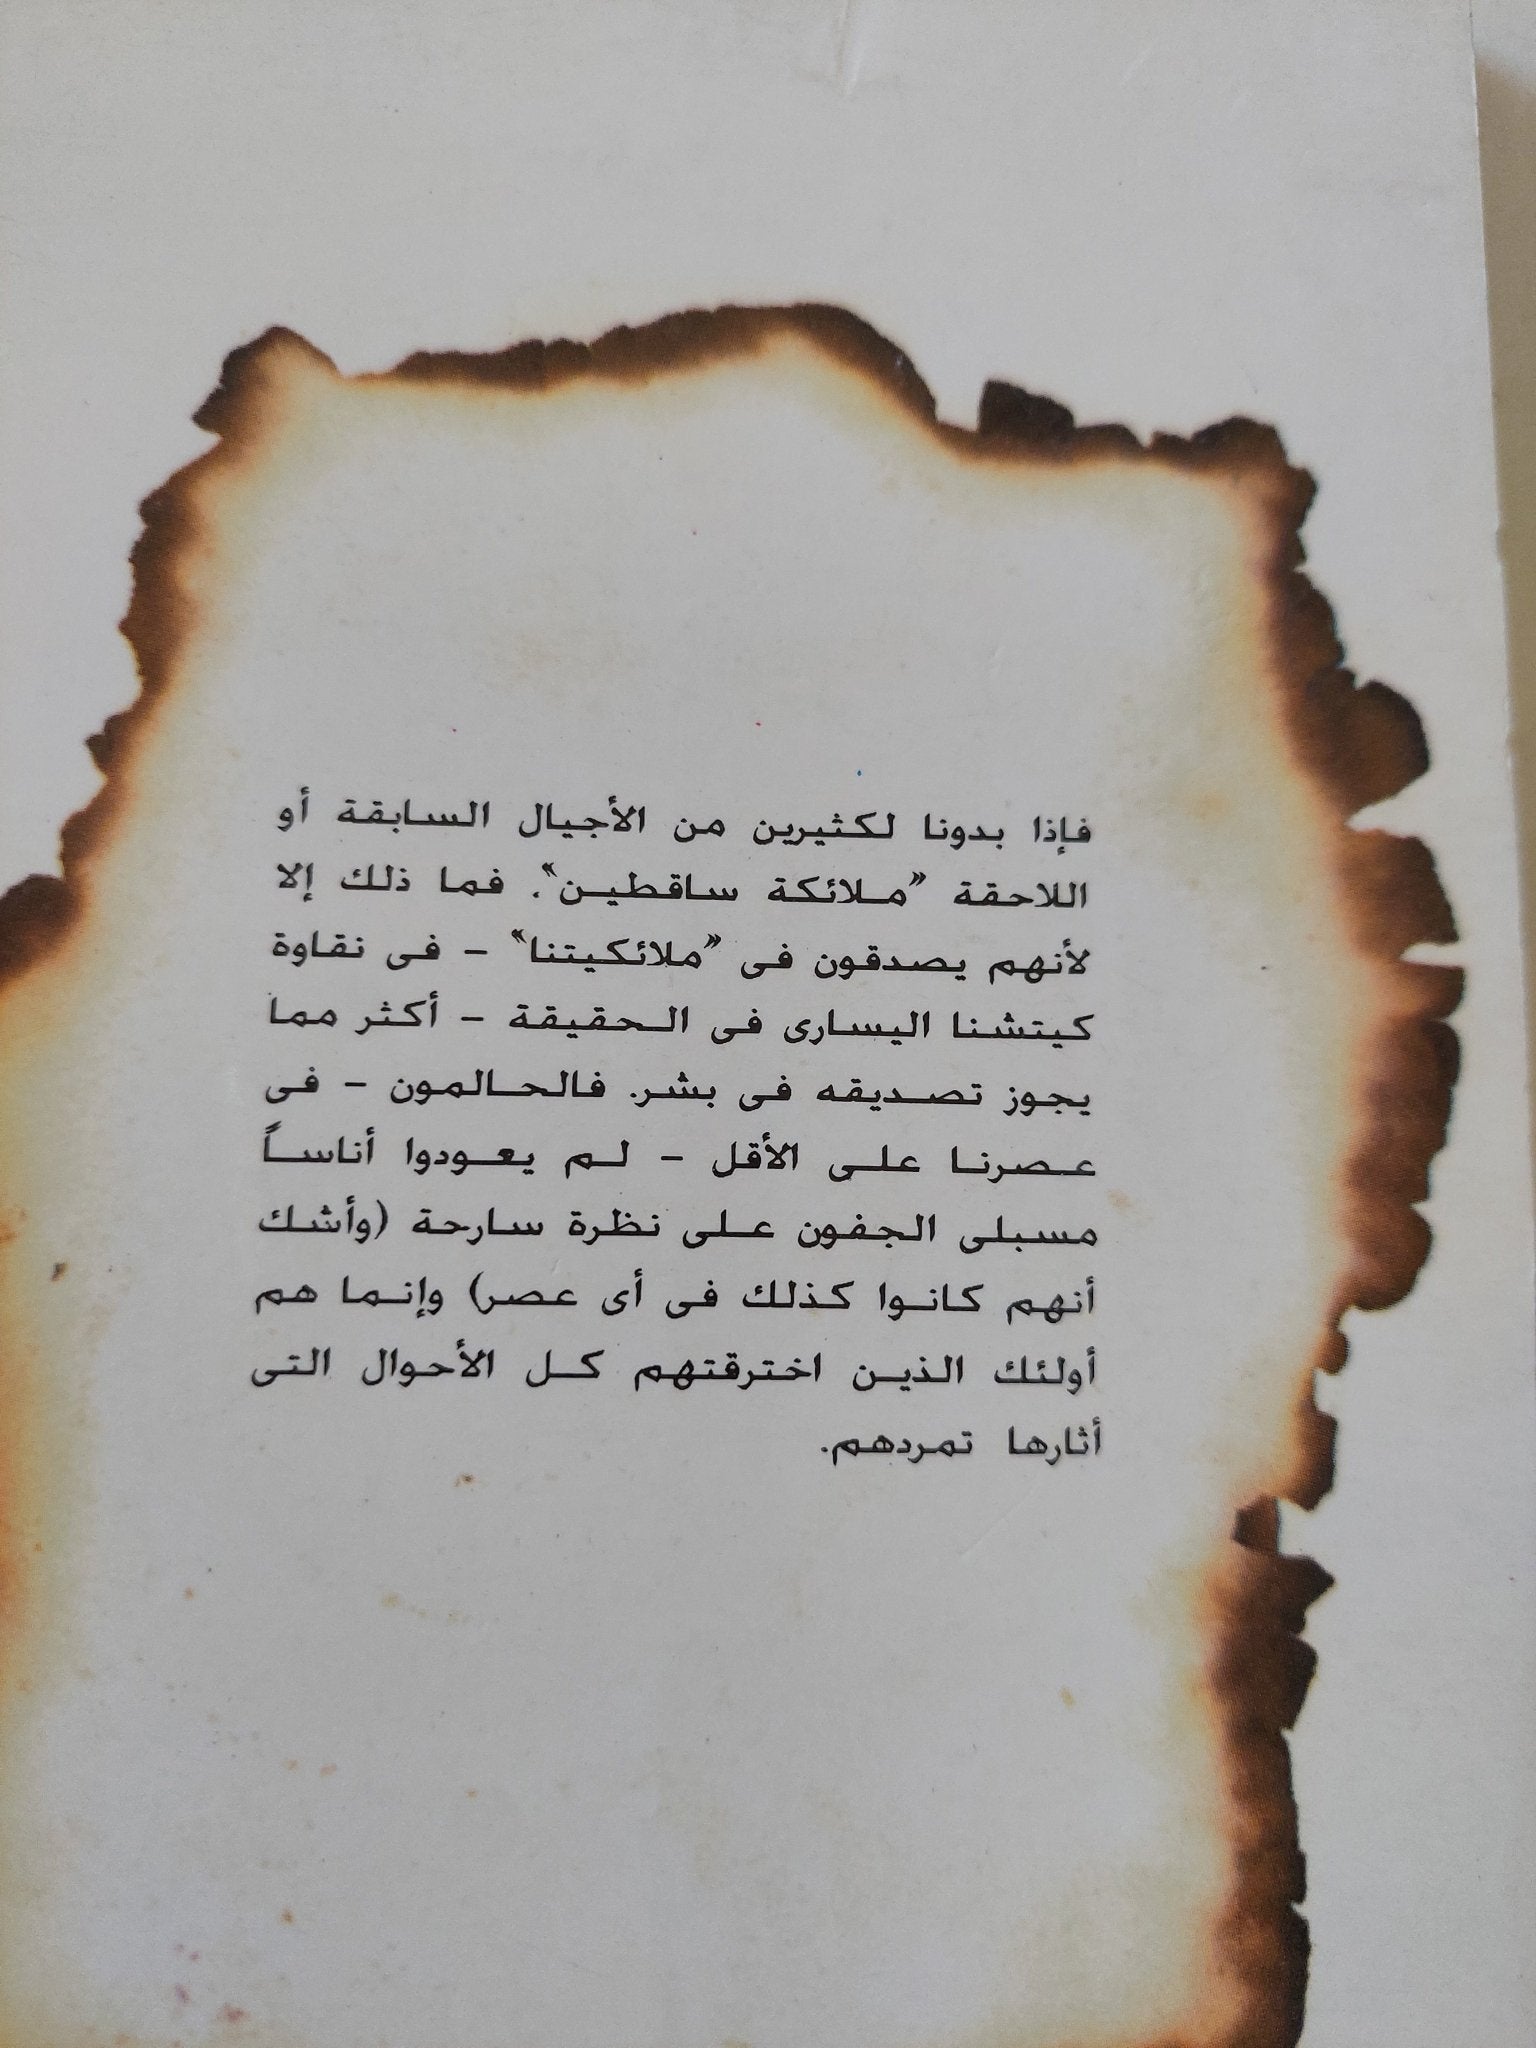 فإذا بدونا لكثيرين من الأجيال السابقة أو
اللاحقة "ملائكة ساقطين"، فما ذلك إلا
لأنهم يصدقون فى "ملائكيتنا" - فى نقاوة
كيتشنا اليسارى فى الحقيقة - أكثر مما
يجوز تصديقه فى بشر. فالحالمون - فى
عصرنا على الأقل - لم يعودوا أناساً
مسبلى الجفون على نظرة سارحة (وأشك
أنهم كانوا كذلك فى أى عصر) وإنما هم
أولئك الذين اخترقتهم كل الأحوال التى
أثارها تمردهم.